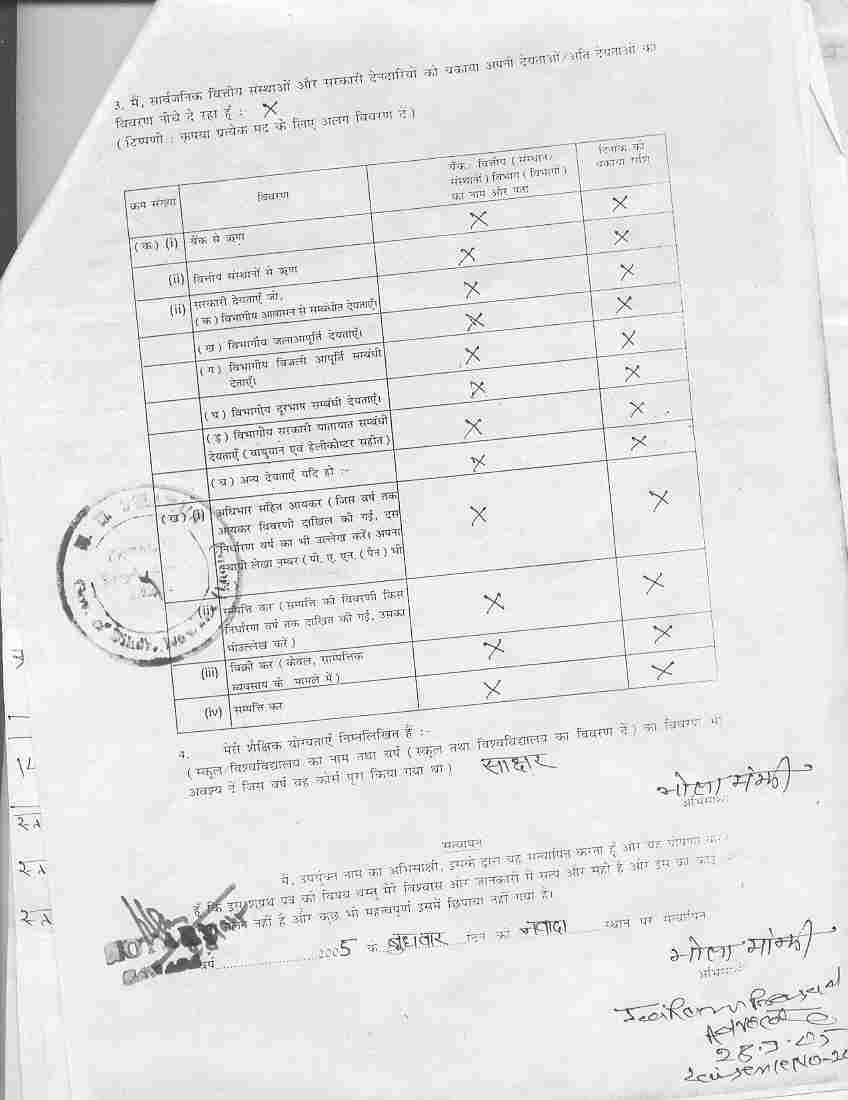 3. मैं, सार्वजनिक वित्तीय संस्थाओं और सरकारी देनदारियों को बकाया अपनी देयताओं/अति देयताओं का
विवरण नीचे दे रहा हूँ : X
(टिप्पणी : कृपया प्रत्येक मद के लिए अलग विवरण दें)
क्रम संख्या विवरण बैंक/वित्तीय (संस्थान/संस्थाओं) विभाग (विभागों) का नाम और पता दिनांक को बकाया राशि
(क) (i) बैंक से ऋण X X
(ii) वित्तीय संस्थानों से ऋण X X
(ii) सरकारी देयताएँ जो, X X
(क) विभागीय आवासन से सम्बंधीत देयताएँ।
(ख) विभागीय जलआपूर्ति देयताएँ। X X
(ग) विभागीय बिजली आपूर्ति सम्बंधी X X
देताएँ।
(घ) विभागीय दूरभाष सम्बंधी देयताएँ। X X
(ड़) विभागीय सरकारी यातायात सम्बंधी X X
देयताएँ (वायुयान एवं हेलीकोप्टर सहीत)
(च) अन्य देयताएँ यदि हो :- X X
(ख) (i) अधिभार सहित आयकर (जिस वर्ष तक X X
आयकर विवरणी दाखिल की गई, उस
निर्धारण वर्ष का भी उल्लेख करें। अपना
स्थायी लेखा नम्बर (पी. ए. एन. (पैन) भी
(ii) सम्पत्ति कर (सम्पत्ति की विवरणी किस X X
निर्धारण वर्ष तक दाखिल की गई, उसका
भी उल्लेख करें)
(iii) बिक्री कर (केवल, साम्पत्तिक X X
व्यवसाय के मामले में)
(iv) सम्पत्ति कर X X
4. मेरी शैक्षिक योग्यताएँ निम्नलिखित हैं :-
(स्कूल/विश्वविद्यालय का नाम तथा वर्ष (स्कूल तथा विश्वविद्यालय का विवरण दें) का विवरण भी
अवश्य दें जिस वर्ष वह कोर्स पूरा किया गया था) साक्षर
भोला मांझी
अभिसाक्षी
सत्यापन
मैं, उपर्युक्त नाम का अभिसाक्षी, इसके द्वारा यह सत्यापित करता हूँ और यह घोषणा करता
हूँ कि इस शपथ पत्र की विषय वस्तु मेरे विश्वास और जानकारी में सत्य और सही है और इस का कोई
नहीं है और कुछ भी महत्वपूर्ण इसमें छिपाया नहीं गया है।
वर्ष 2005 के बुधवार दिन को नवादा स्थान पर सत्यापित
भोला मांझी
अभिसाक्षी
Advocate